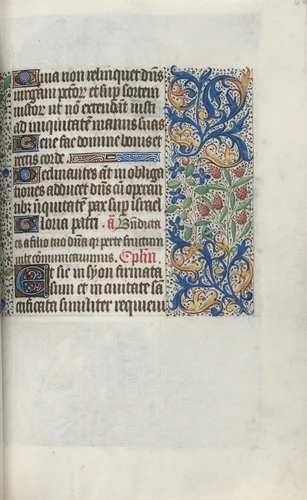 Quia non relinquet dns
virgam pctorum et sup sortem
iustorum ut non extendant iusti
ad iniquitatem manus suas
Bene fac domine bonis et
rectis corde
Declinantes autem in obliga
tiones adducet dns cum operan
tibus iniquitatem pax sup israel
Gloria patri a Benedicta
es a filio tuo domina quia per te fructum
vite communicauimus. Capitulum
Et sic in syon firmata
sum et in ciuitate san
ctificata similiter requieui